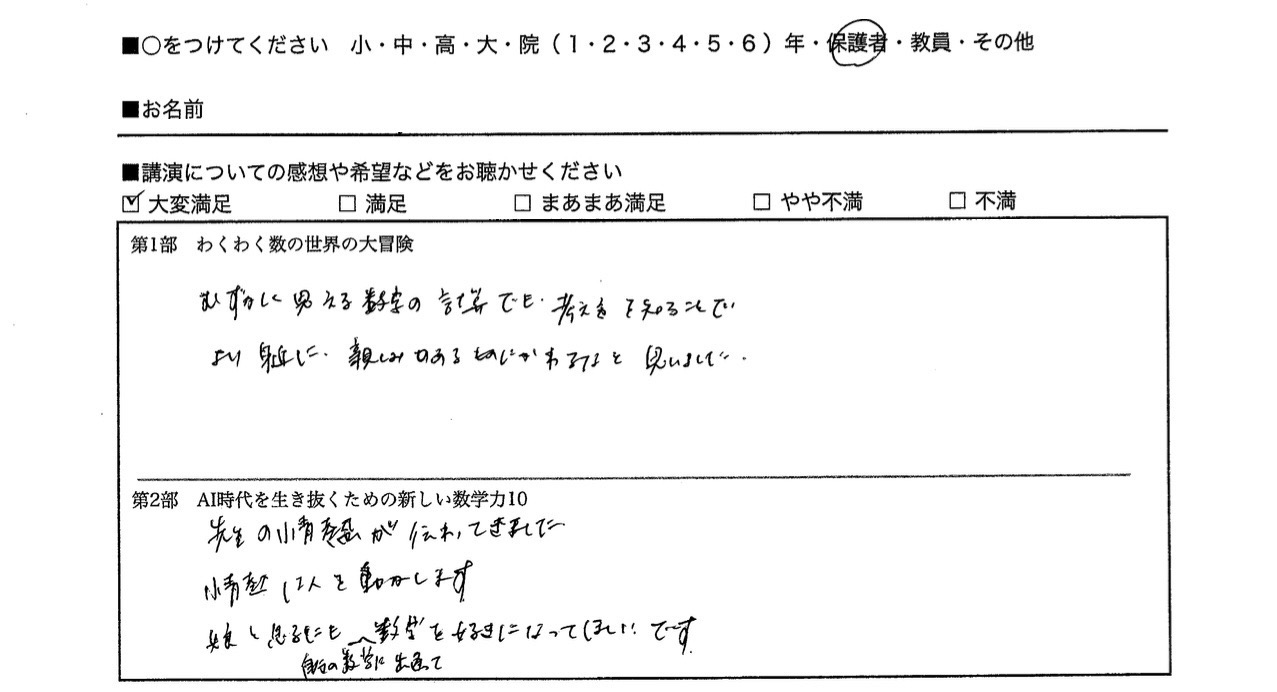 ■○をつけてください　小・中・高・大・院（1・2・3・4・5・6）年・保護者・教員・その他
■お名前
■講演についての感想や希望などをお聴かせください
☑ 大変満足　□ 満足　□ まあまあ満足　□ やや不満　□ 不満
第1部　わくわく数の世界の大冒険
むずかしく見える数字の計算でも、考え方を知ることで
より身近に、親しみのあるものにかわるなと思いました。
第2部　AI時代を生き抜くための新しい数学力10
先生の情熱が伝わってきました
情熱は人を動かします
娘と息子にも 数学を好きになってほしいです
自分の数学に出逢って